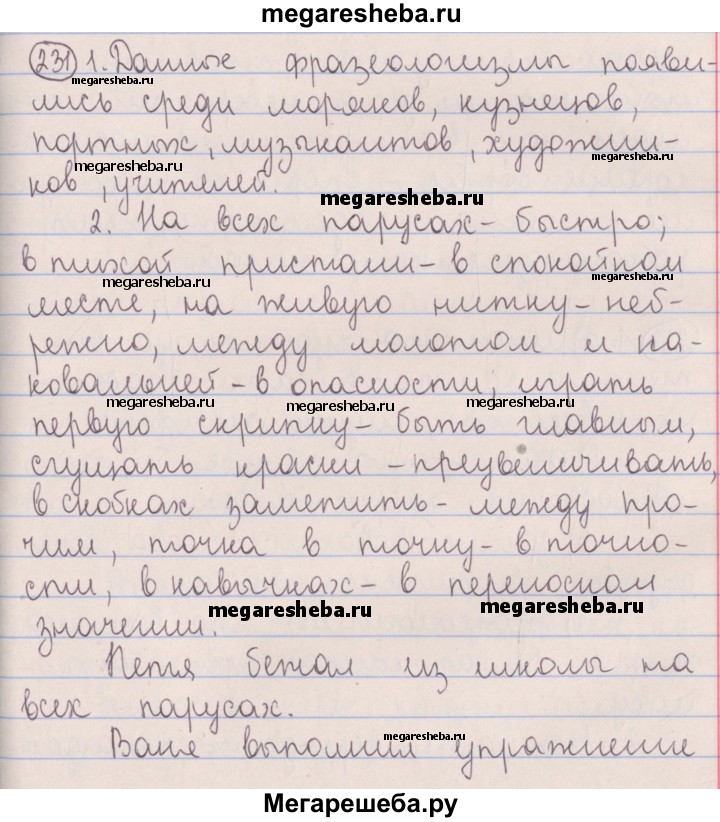 megaresheba.ru
231 1. Данные фразеологизмы появи-
megaresheba.ru
лись среди моряков, кузнецов,
портных, музыкантов, художни-
megaresheba.ru
megaresheba.ru
ков, учителей.
megaresheba.ru
2. На всех парусах - быстро;
в тихой пристани - в спокойном
megaresheba.ru
megaresheba.ru
месте, на живую нитку - неб-
режно, между молотом и на-
ковальней - в опасности, играть
megaresheba.ru
megaresheba.ru
megaresheba.ru
первую скрипку - быть главным,
сгущать краски - преувеличивать,
в скобках заметить - между про-
чим, точка в точку - в точно-
сти, в кавычках - в переносном
megaresheba.ru
megaresheba.ru
значении.
Петя бежал из школы на
всех парусах.
megaresheba.ru
Ваня выполнил упражнение
Мегарешеба.ру